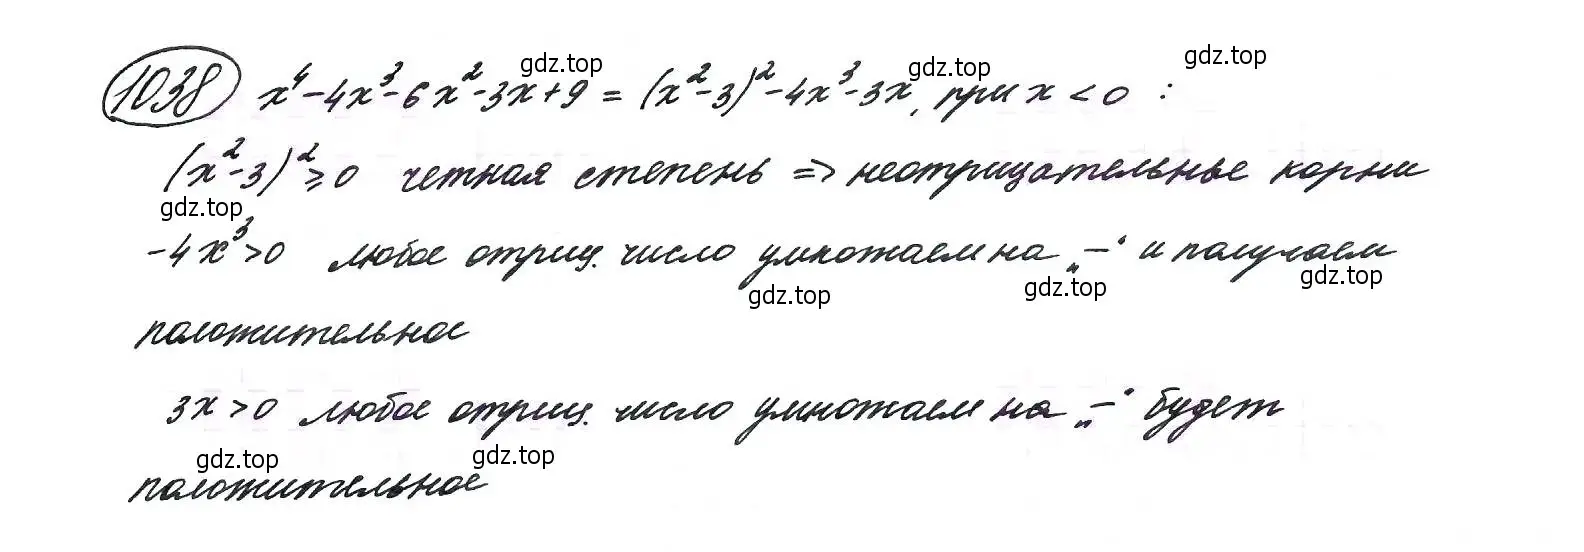 gdz.top
gdz.top
gdz.top
1038 x⁴-4x³-6x²-3x+9=(x²-3)²-4x³-3x, при x<0 :
(x²-3)²≥0 четная степень => неотрицательные корни
gdz.top
-4x³>0 любое отриц. число умножаем на „-“ и получаем
gdz.top
gdz.top
gdz.top
положительное
3x>0 любое отриц. число умножаем на „-“ будет
gdz.top
gdz.top
положительное